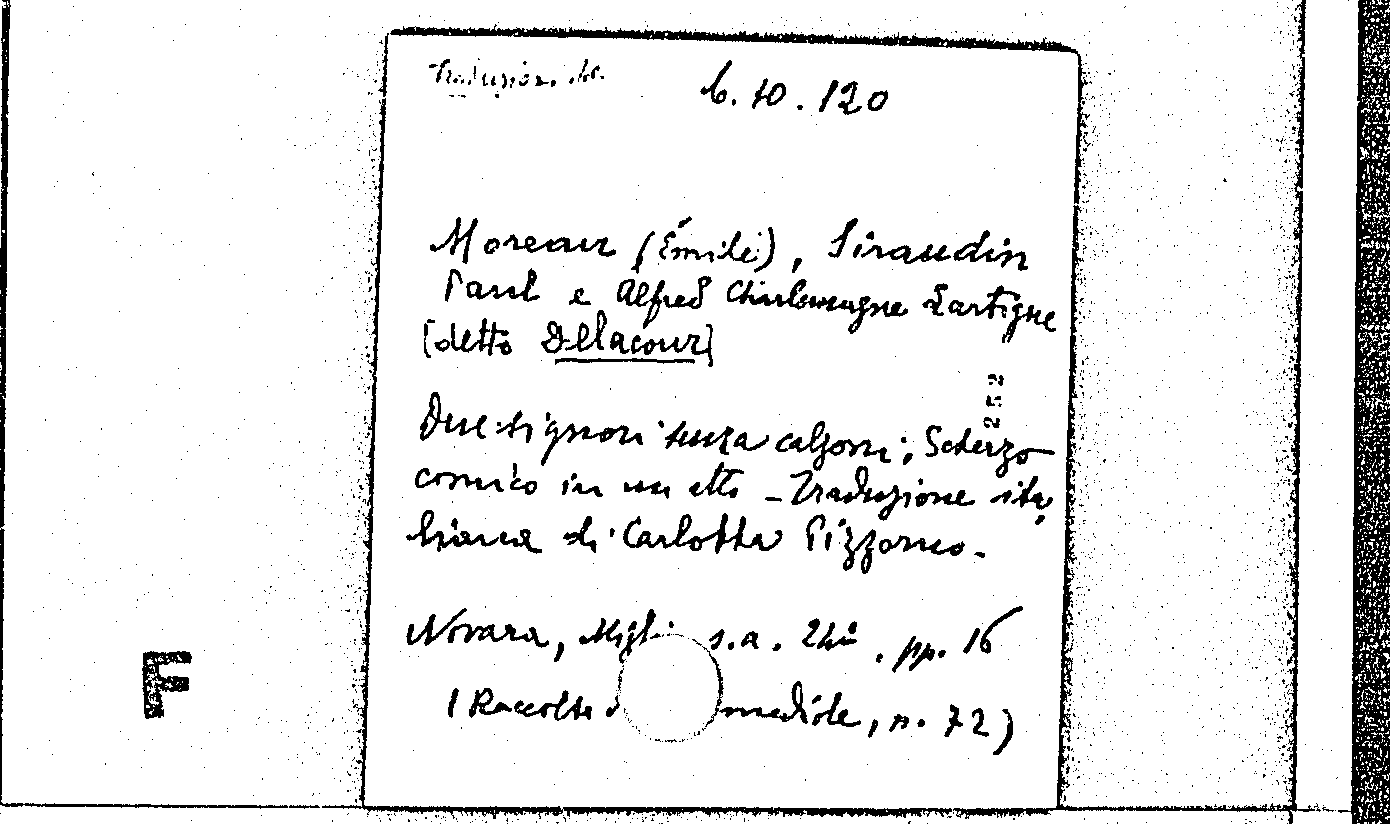 Traduzioni
6.10.120
Moreau (Émile), Siraudin
Paul e Alfred Charlemagne Lartigue
[detto Dellacour]
252
Due signori senza calzoni; Scherzo
comico in un atto - Traduzione ita,
liana di Carlotta Pizzorno.
Novara, Migli s.a. 24º, pp. 16
(Raccolta mediole, n. 72)
F